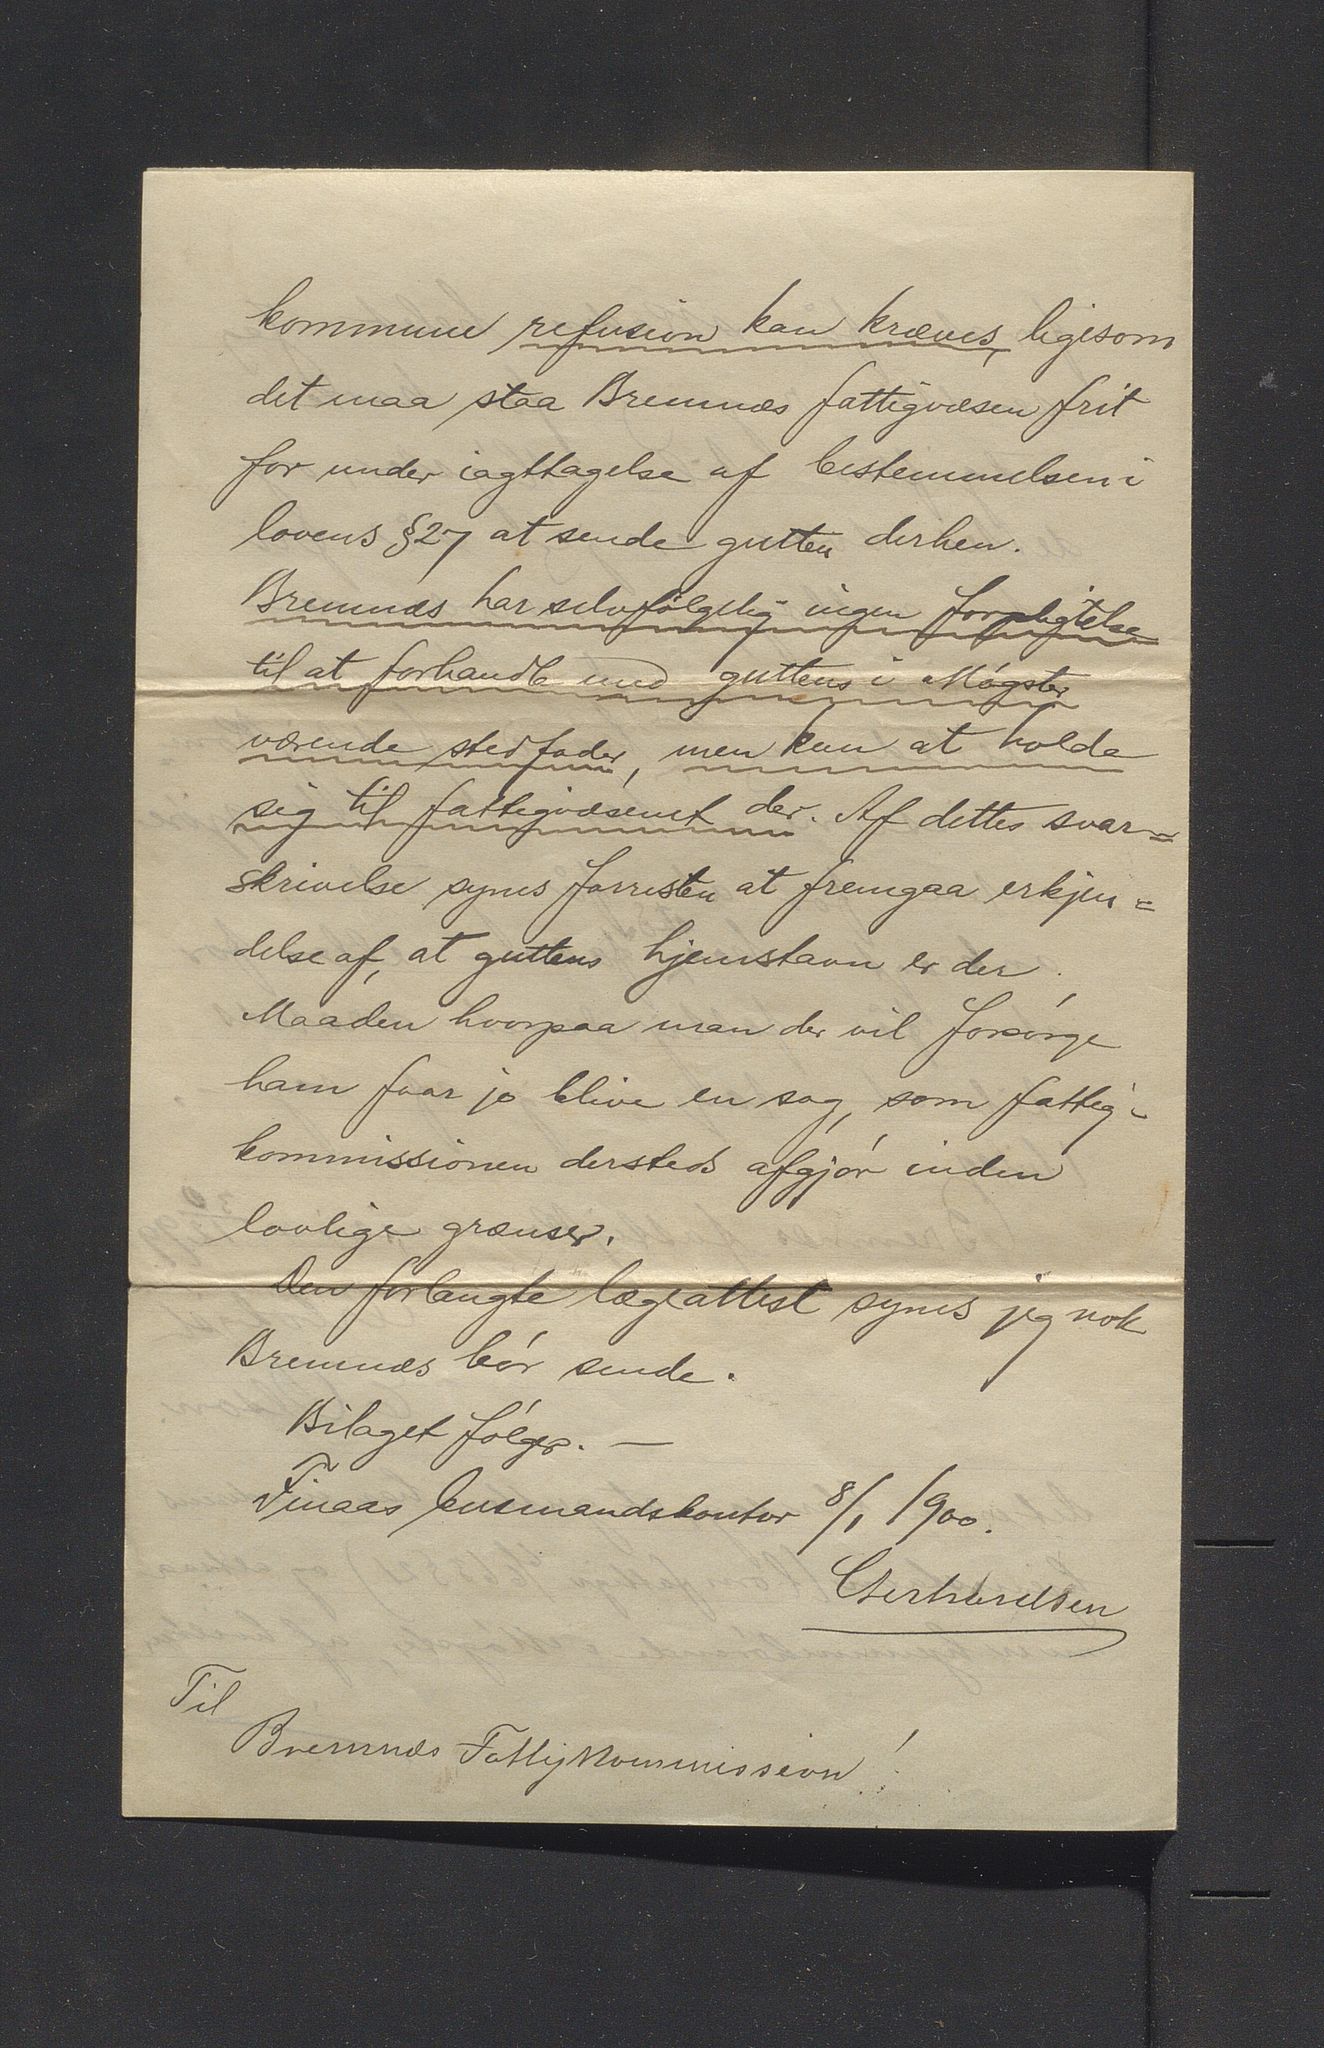 kommune refusion kan kræves, ligesom
det maa staa Bremnæs fattigvæsen frit
for under iagttagelse af bestemmelsen i
lovens § 27 at sende gutten derhen.
Bremnæs har selvfølgelig ingen forpligtelse
til at forhandle med guttens i Møgster
værende stedfader, men kun at holde
sig til fattigvæsenet der. Af dettes svar=
skrivelse synes forresten at fremgaa erkjen=
delse af, at guttens hjemstavn er der.
Maaden hvorpaa man der vil forsørge
ham faar jo blive en sag, som fattig-
kommissionen dersteds afgjør inden
lovlige grænser.
Den forlangte lægeattest synes jeg nok
Bremnæs bør sende.
Bilaget følger. —
Finaas lensmandskontor 8/1 1900.
Gerhardsen
Til
Bremnæs Fattigkommission!